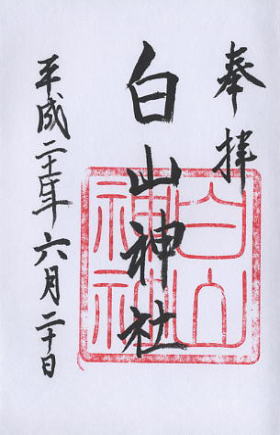 奉拝
白山神社
平成二十年六月二十日
白山
神社